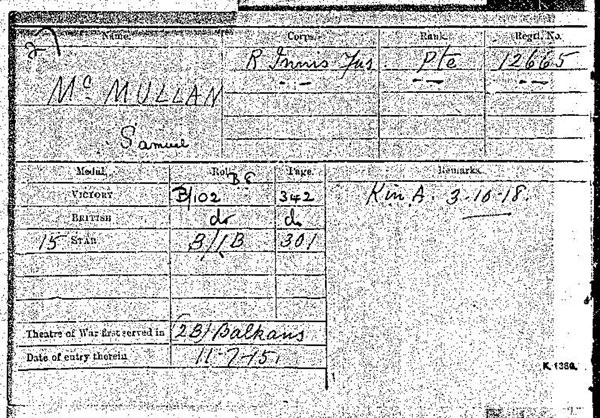 27
Name. Corps. Rank. Regtl. No.
Mc MULLAN R Innis Fus. Pte 12665
Samuel
Medal. Roll. Page. Remarks.
B E
VICTORY B/102 342 Kin A. 3-10-18.
BRITISH do do
15 STAR B/1B 301
Theatre of War first served in (2B) Balkans
Date of entry therein 11-7-15.
K 1380.